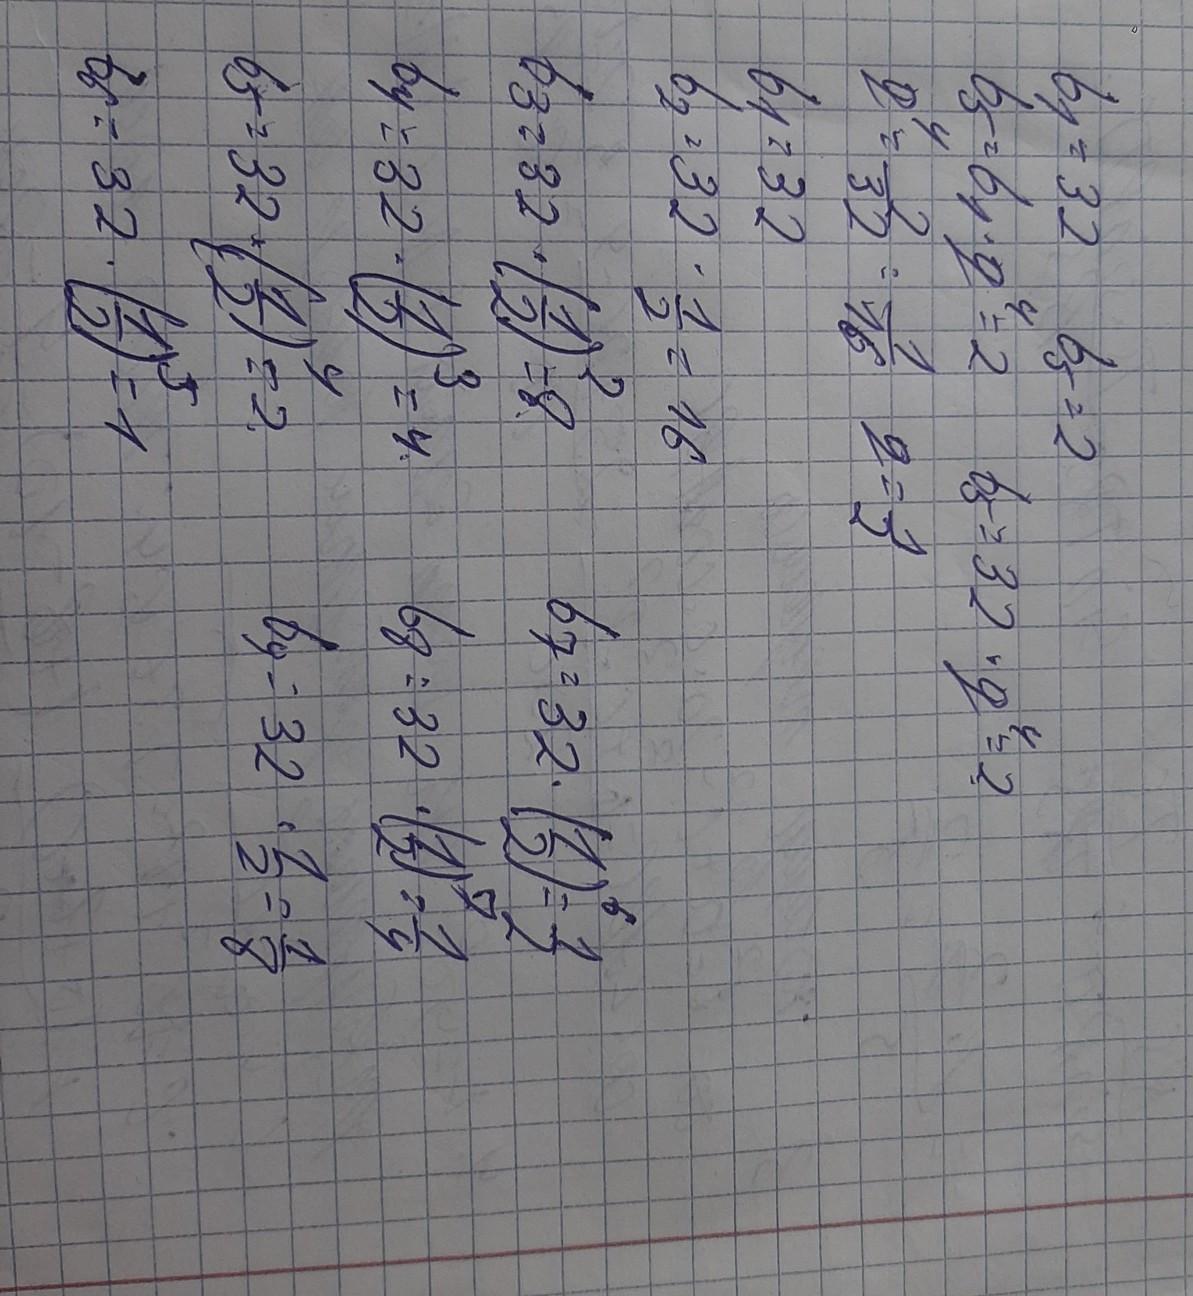 b₁ = 32 b₅ = 2
b₅ = b₁ · q⁴ = 2 b₅ = 32 · q⁴ = 2
q⁴ = 2/32 = 1/16 q = 1/2
b₁ = 32
b₂ = 32 · 1/2 = 16
b₃ = 32 · (1/2)² = 8 b₇ = 32 · (1/2)⁶ = 1/2
b₄ = 32 · (1/2)³ = 4 b₈ = 32 · (1/2)⁷ = 1/4
b₅ = 32 · (1/2)⁴ = 2 b₉ = 32 · 1/2 = 1/8
b₆ = 32 · (1/2)⁵ = 1